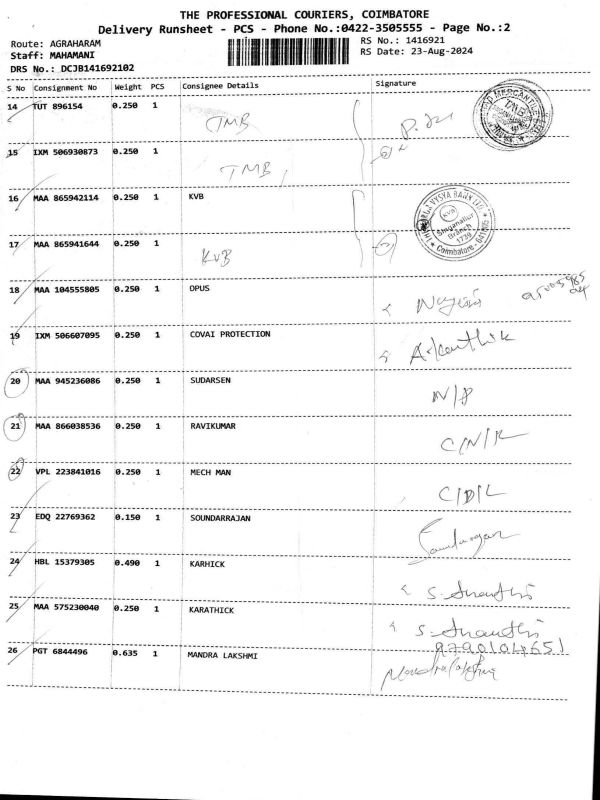 THE PROFESSIONAL COURIERS, COIMBATORE
Delivery Runsheet - PCS - Phone No.:0422-3505555 - Page No.:2
Route: AGRAHARAM
RS No.: 1416921
Staff: MAHAMANI
RS Date: 23-Aug-2024
DRS No.: DCJB141692102
S No Consignment No Weight PCS Consignee Details Signature
14 TUT 896154 0.250 1 TMB
15 IXM 506930873 0.250 1 TMB
16 MAA 865942114 0.250 1 KVB
17 MAA 865941644 0.250 1 KVB
Singanallur
Branch
1739
Coimbatore - 641005
18 MAA 104555805 0.250 1 OPUS
19 IXM 506607095 0.250 1 COVAI PROTECTION
20 MAA 945236086 0.250 1 SUDARSEN
21 MAA 866038536 0.250 1 RAVIKUMAR
22 VPL 223841016 0.250 1 MECH MAN C/D/L
23 EDQ 22769362 0.150 1 SOUNDARRAJAN
24 HBL 15379305 0.490 1 KARHICK
25 MAA 575230040 0.250 1 KARATHICK
9790104651
26 PGT 6844496 0.635 1 MANDRA LAKSHMI